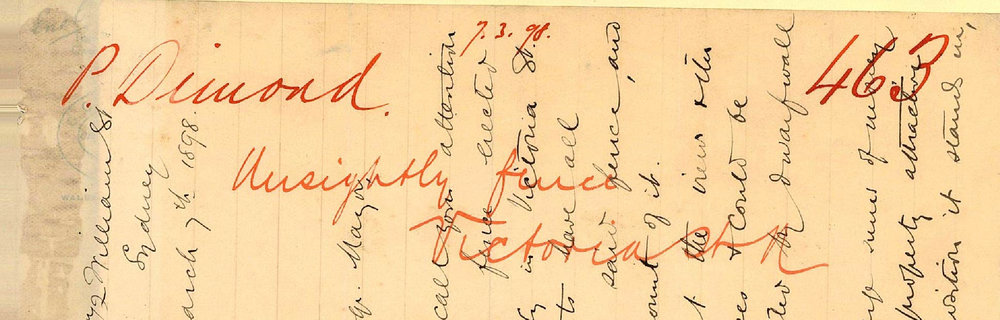 7.3.98.
P. Dimond.
463
Unsightly fence
Victoria St N
William St
Sydney
March 7th 1898.
Mayor
call your attention
fence erected
in Victoria St.
to have all
said fence, and
of it.
the view & the
& could be
by dwarf wall
sums of money
property attractive
position it stands in,